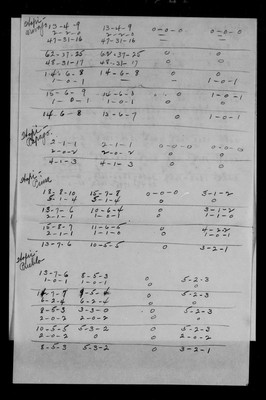 13-4-9 13-4-9 0-0-0 0-0-0
2-2-0 2-2-0 0 0
47-31-16 47-31-16 — —
62-37-25 62-37-25 0 0
48-31-17 48-31-17 0 0
14-6-8 14-6-8 0 0
1-0-1 — — 1-0-1
15-6-9 14-6-8 0 1-0-1
1-0-1 1-0-1 0 0
14-6-8 13-6-7 0 1-0-1
Hopi-
2-1-1 2-1-1 0-0-0 0-0-0
2-0-2 2-0-2 0 0
4-1-3 4-1-3 0 0
Hopi-
18-8-10 15-7-8 0-0-0 3-1-2
5-1-4 5-1-4 0 0
13-7-6 10-6-4 0 3-1-2
2-1-1 1-0-1 0 1-1-0
15-8-7 11-6-5 0 4-2-2
2-1-1 1-1-0 0 1-0-1
13-7-6 10-5-5 0 3-2-1
Hopi-
Pueblo
13-7-6 8-5-3 0 5-2-3
1-0-1 1-0-1 0 0
0 5-2-3
6-2-4 6-2-4 0 0
8-5-3 3-3-0 0 5-2-3
2-0-2 2-0-2 0 0
10-5-5 5-3-2 0 5-2-3
2-0-2 0 0 2-0-2
8-5-3 5-3-2 0 3-2-1